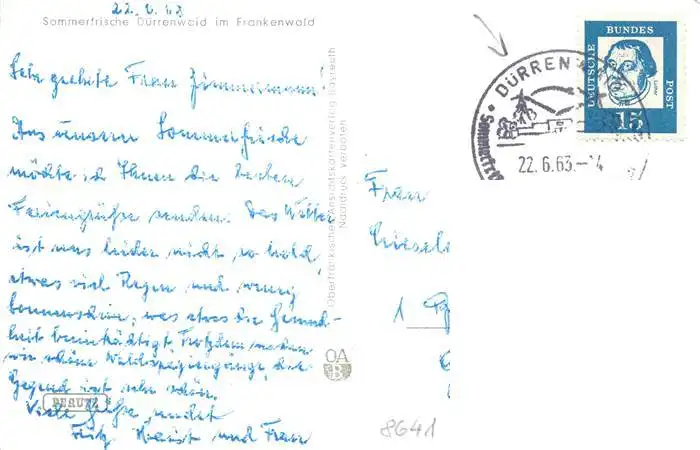 22.6.63
Sommerfrische Dürrenwaid im Frankenwald
Sehr geehrte Frau Zimmermann!
Aus unserer Sommerfrische
möchte ich Ihnen die besten
Feriengrüße senden. Das Wetter
ist uns leider nicht so hold,
etwas viel Regen und wenig
Sonnenschein, was etwas die Gesund-
heit beeinträchtigt. Trotzdem machen
wir schöne Waldspaziergänge, die
Gegend ist sehr schön.
Viele Grüße sendet
Fritz und Frau
PERUTZ
Oberfränkischer Ansichtskartenverlag Bayreuth
Nachdruck verboten
OA
B
DÜRREN
22.6.63.-14
DEUTSCHE
BUNDES
POST
15
Frau
Gisel
1
8641